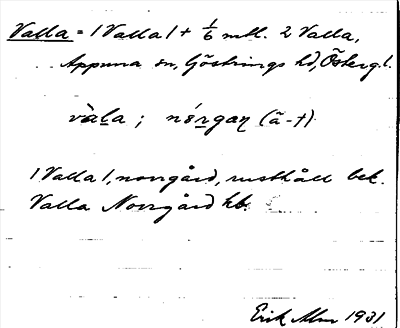 Valla = 1 Valla 1 + 1/6 mtl. 2 Valla,
Appuna sn, Göstrings hd, Östergl.
vàla; nó́rgaɳ (ã-†)
1 Valla 1, norrgård, rusthåll bek.
Valla Norrgård hb.
Erik Alm 1931